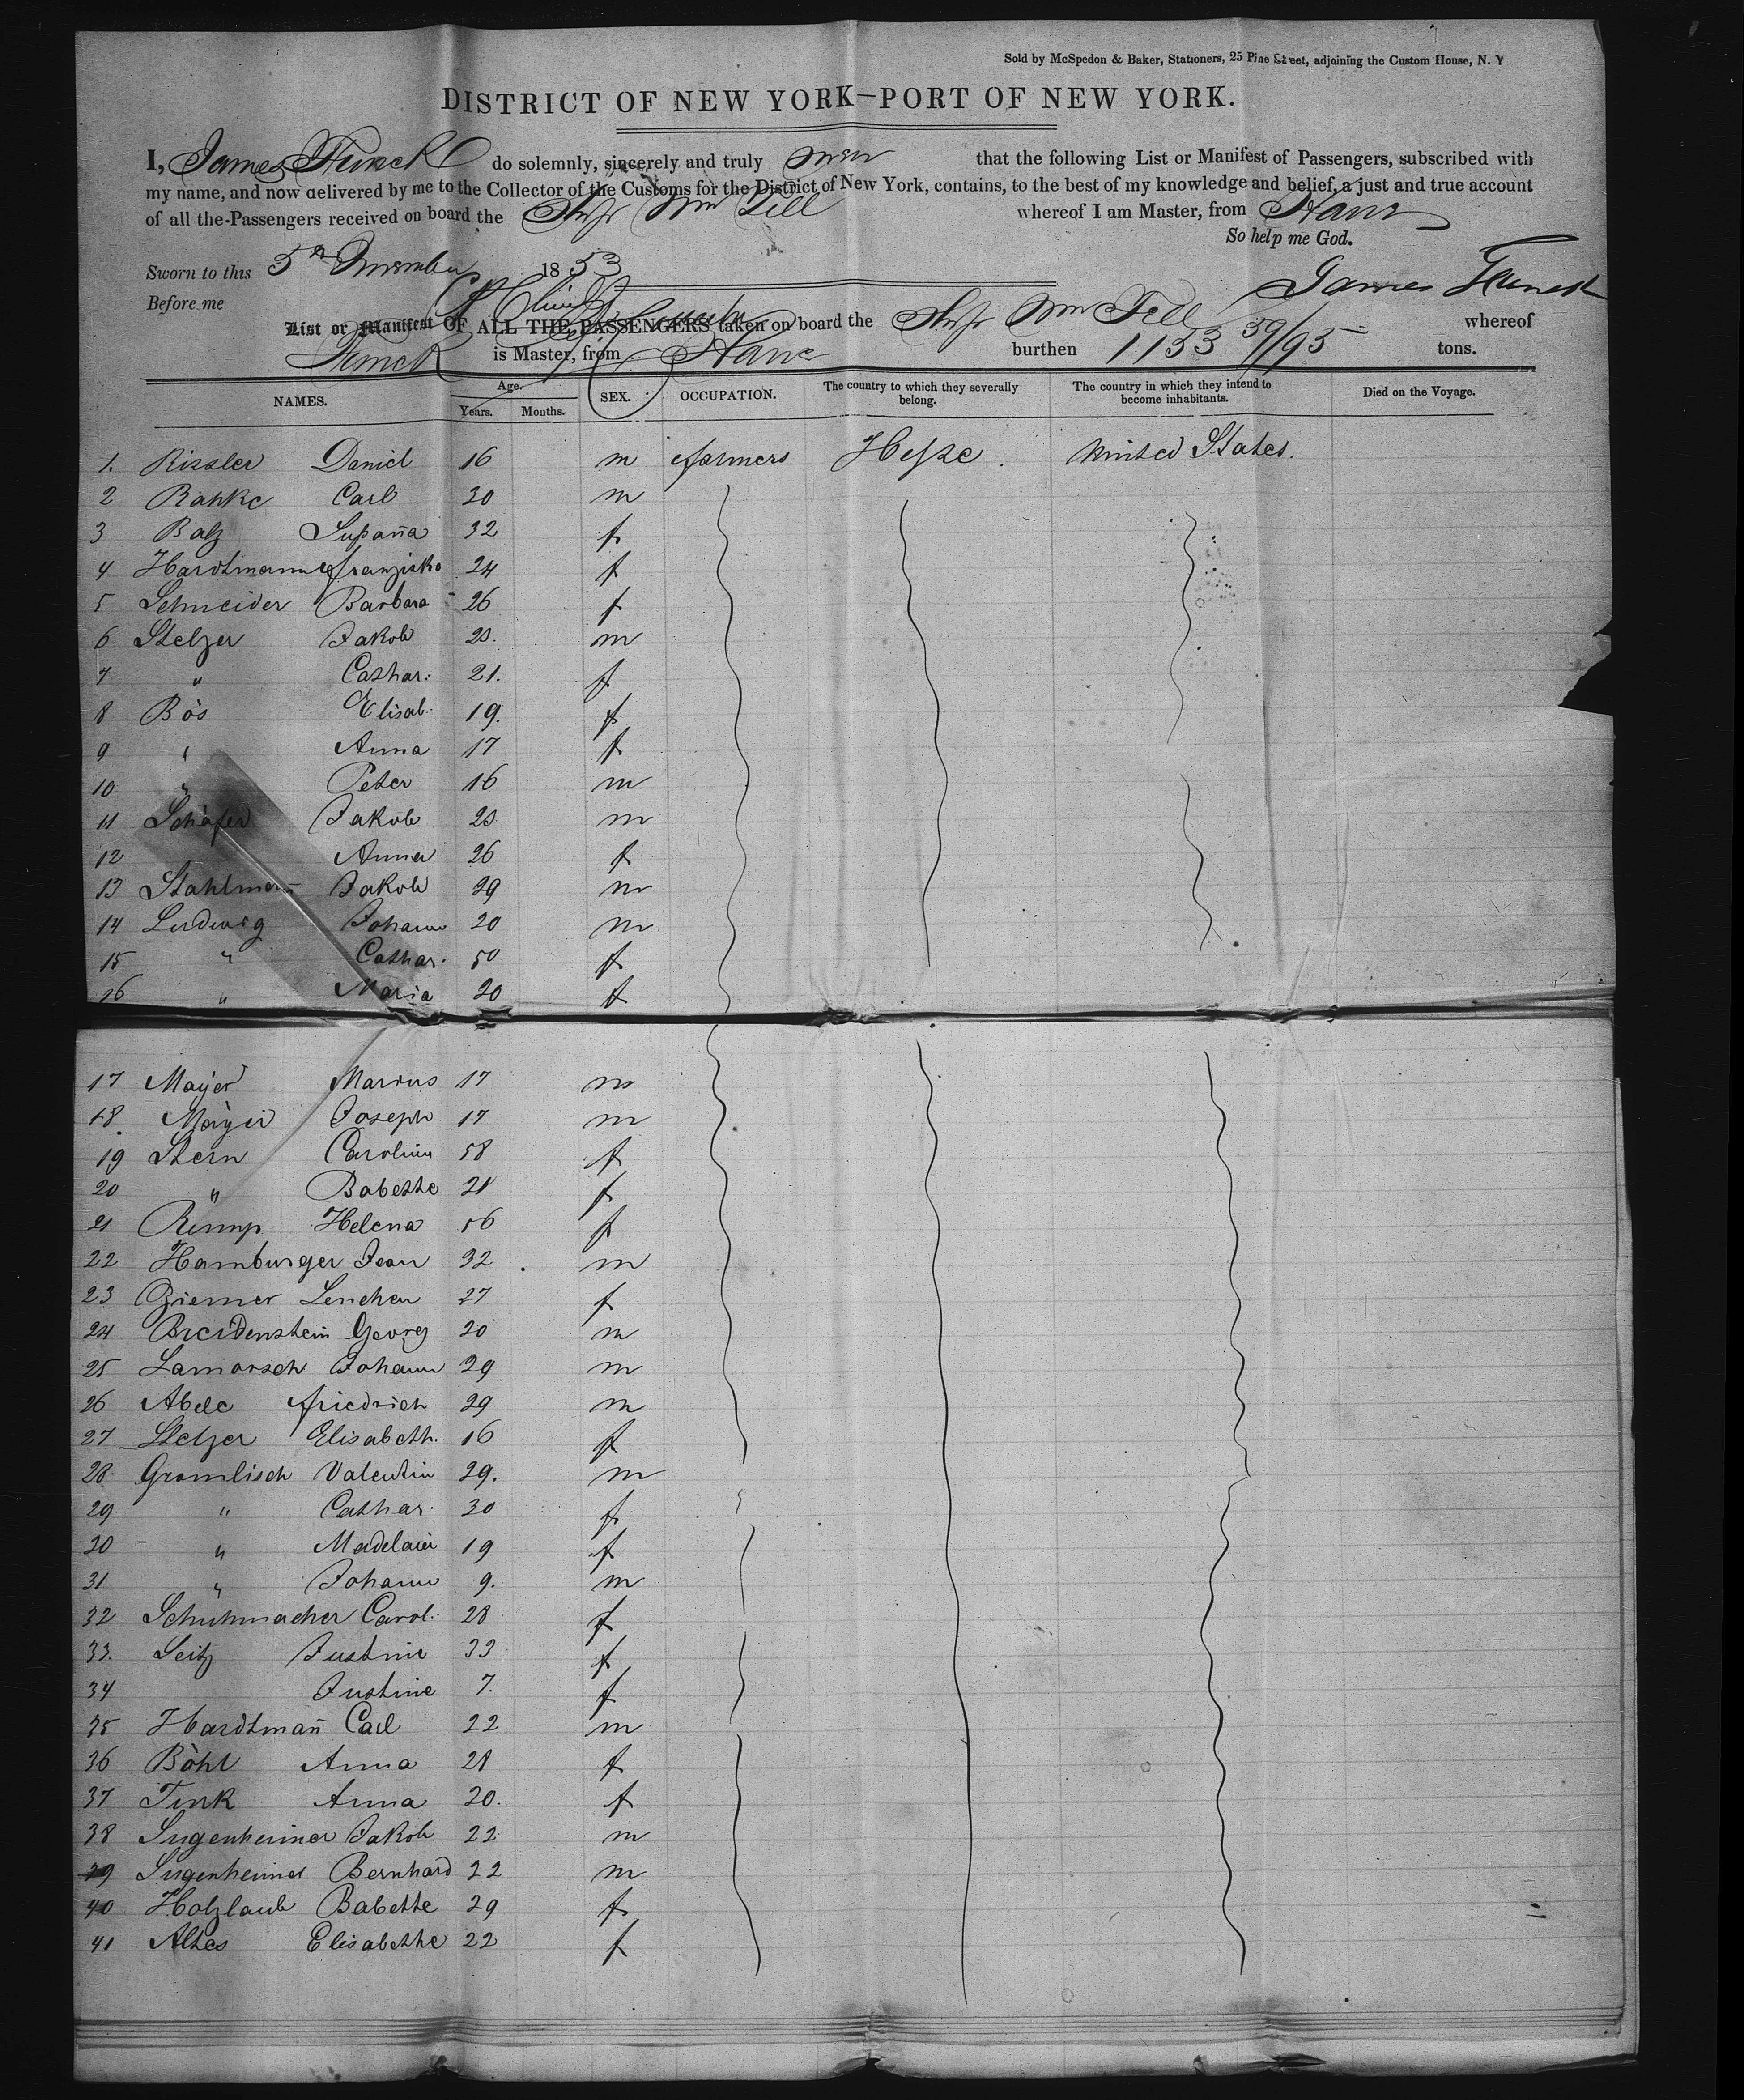 Sold by McSpedon & Baker, Stationers, 25 Pine Street, adjoining the Custom House, N. Y
DISTRICT OF NEW YORK—PORT OF NEW YORK.
I, James Funck do solemnly, sincerely and truly that the following List or Manifest of Passengers, subscribed with
my name, and now delivered by me to the Collector of the Customs for the District of New York, contains, to the best of my knowledge and belief, a just and true account
of all the Passengers received on board the Ship Wm Tell whereof I am Master, from Havre
So help me God.
Sworn to this 5th 1853
James Funck
Before me
List or Manifest OF ALL THE PASSENGERS taken on board the Ship Wm Tell whereof
Funck is Master, from Havre burthen 1.153 39/95 tons.
NAMES. Age. Years. Months. SEX. OCCUPATION. The country to which they severally belong. The country in which they intend to become inhabitants. Died on the Voyage.
1. Rissler Daniel 16 m farmers Heßze. United States.
2 Rahke Carl 20 m
3 Balz Sußan̄a 32 f
4 Hardtmann franziska 24 f
5 Schneider Barbara 26 f
6 Stelzer Jakob m
7 " Cathar. 21. f
8 Bös Elisab. 19. f
9 " Anna 17 f
10 " Peter 16 m
11 Schäfer Jakob m
12 Anna 26 f
13 Stahlman̄ Jakob 29 m
14 Ludwig Johann 20 m
15 " Cathar. 50 f
16 " Maria 20 f
17 Mayer Marcus 17 m
18. Mayer Joseph 17 m
19 Stern Carolina 58 f
20 " Babette 21 f
21 Rump Helena 56 f
22 Hamburger Jean 32 m
23 Ziemer Lenchen 27 f
24 Breidenstein Georg 20 m
25 Lamorsch Johann 29 m
26 Abele friedrich 29 m
27 Stelzer Elisabeth. 16 f
28 Gromlisch Valentin 29. m
29 " Cathar. 30 f
30 " Madelain 19 f
31 " Johann 9. m
32 Schuhmacher Carol. 28 f
33. Seitz Justine 33 f
34 Justine 7. f
35 Hardtman̄ Carl 22 m
36 Böhl Anna 28 f
37 Tink Anna 20. f
38 Sugenheimer Jakob 22 m
39 Sugenheimer Bernhard 22 m
40 Holzlaub Babette 29 f
41 Altes Elisabethe 22 f